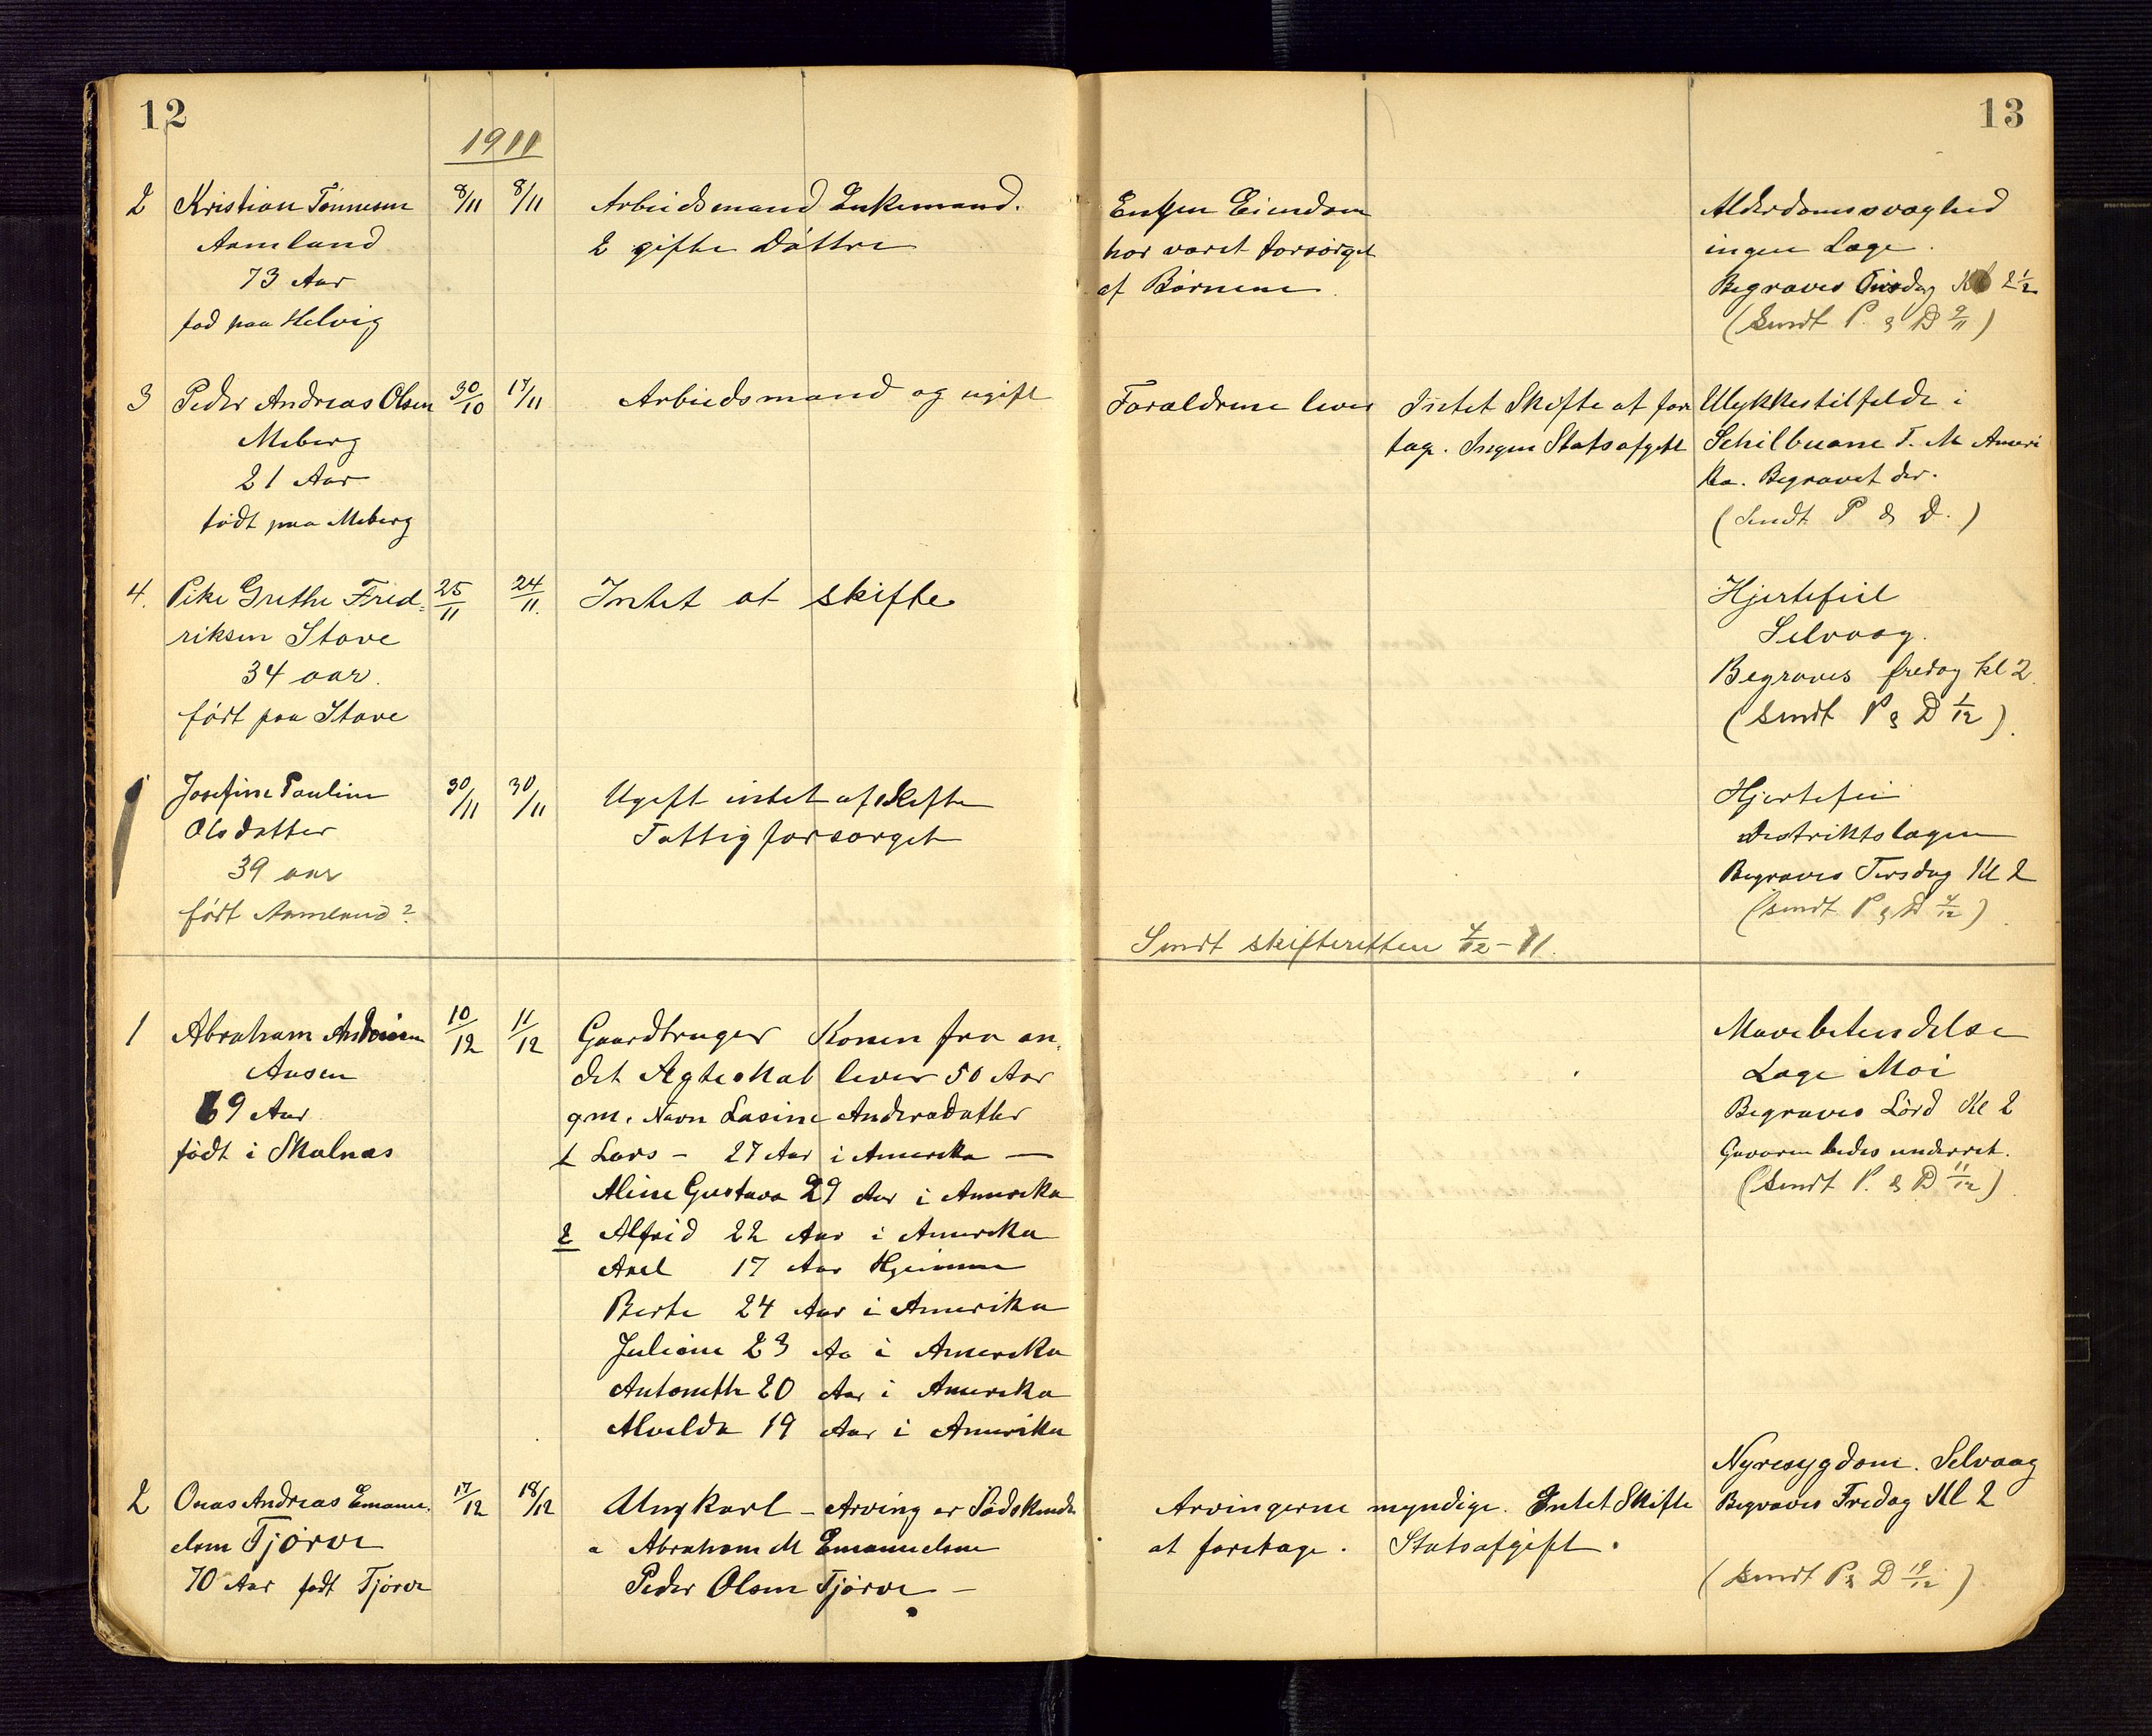 12
1911
2 Kristian Tønnesen 8/11 8/11 Arbeidsmand Enkemand.
Aamland 2 gifte Døttre
73 Aar
fød paa Helvig
3 Peder Andreas Olsen 30/10 17/11 Arbeidsmand og ugift
Meberg
21 Aar
født paa Meberg
4. Pike Grethe Fred- 25/11 24/11. Intet at skifte
riksen Stave
34 aar.
født paa Stave
Josefine Pauline 30/11 30/11 Ugift intet at skifte
Olsdatter Fattigforsørget
39 aar
født Aamland?
1 Abraham 10/12 11/12 Gaardbruger Konen fra an-
Aasen det Ægteskab lever 50 Aar
69 Aar gm. Navn Lasine Andersdatter
født i Skalnæs 1 Lars - 27 Aar i Amerika —
Aline Gustava 29 Aar i Amerika
2 Alfrid 22 Aar i Amerika
Axel 17 Aar Hjemme
Berte 24 Aar i Amerika
Juliane 23 Aa i Amerika
Antonette 20 Aar i Amerika
Alvilda 19 Aar i Amerika
2 Onas Andreas Emanu- 17/12 18/12 Ungkarl - Arving er Sødskende
elsen Tjørve a Abraham M Emanuelsen
70 Aar født Tjørve Peder Olsen Tjørve —
13
Engen Eiendom Alderdomssvaghed
har været forsørget ingen Læge.
af Børnene. Begraves Tirsdag Kl 2½
(sendt P. & D 9/11)
Forældrene lever Intet Skifte at fore Ulykkestilfelde i
tage. Ingen Statsafgift T. M Ameri
ka. Begravet der.
(Sendt P & D.)
Hjertefeil
Selvaag.
Begraves fredag kl 2.
(sendt P & D 1/12).
Hjertefei
Distriktslægen
Begraves Tirsdag Kl 2
(sendt P & D 4/12)
Sendt skifteretten 4/12 - 11.
Mavebetendelse
Læge Moi
Begraves Lørd Kl 2
bedes underret.
(sendt P. & D 11/12)
Nyresygdom. Selvaag
Arvingerne myndige. Intet Skifte Begraves Fredag Kl 2
at foretage. Statsafgift.
(sendt P & D 19/12)